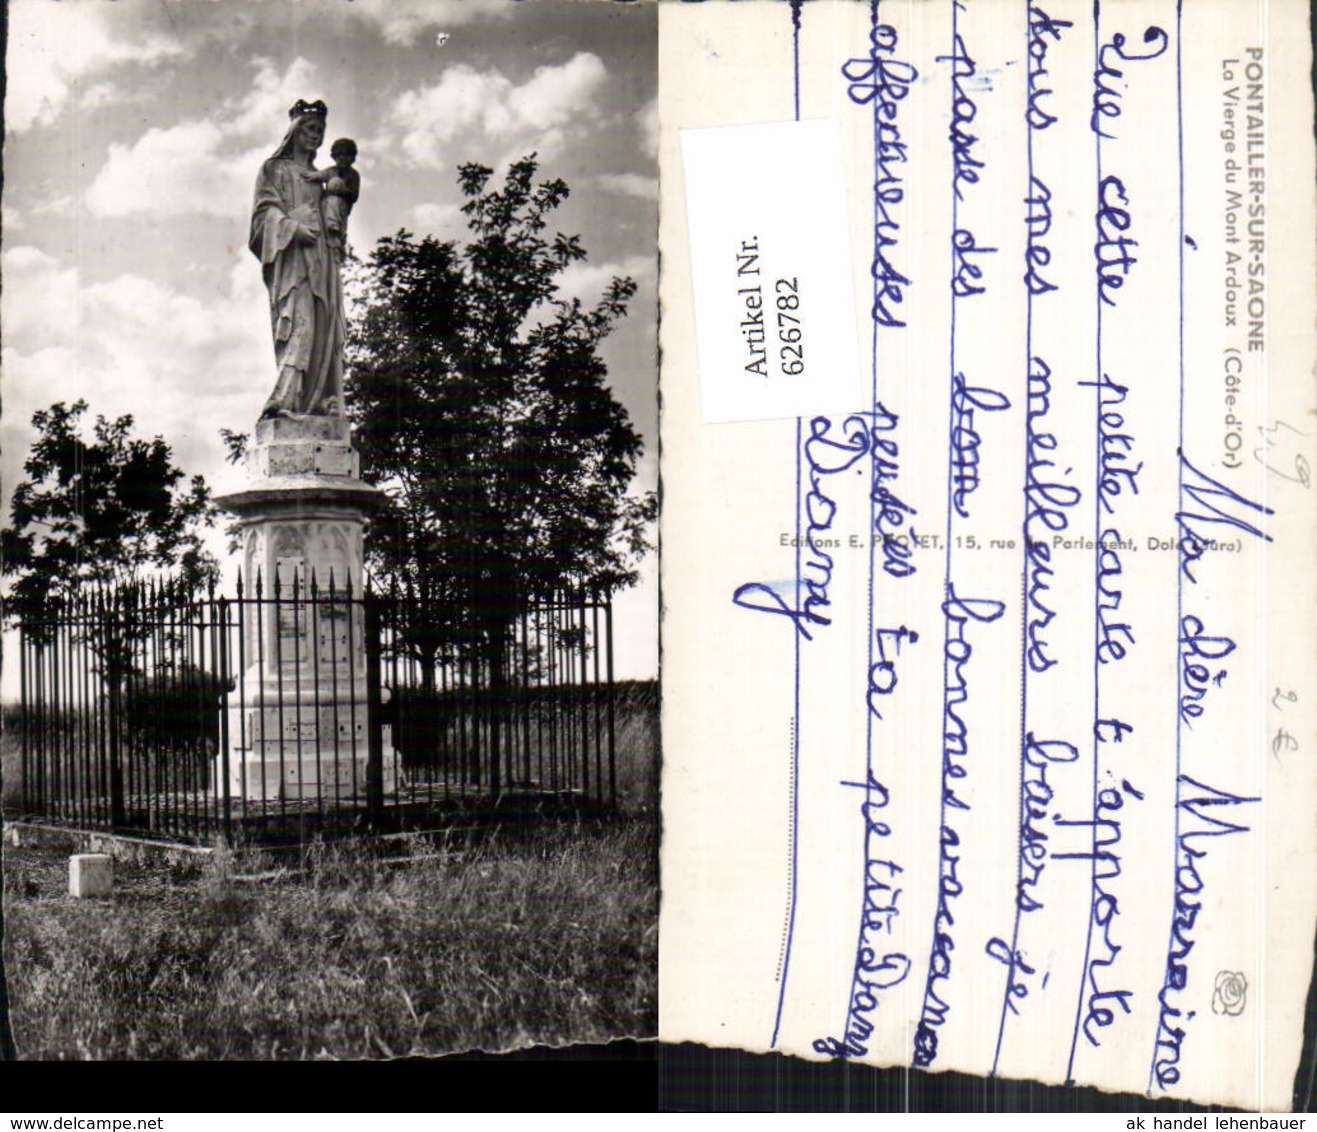 PONTAILLER-SUR-SAONE
La Vierge du Mont Ardoux (Côte-d'Or)
49
2 €
Ma chère Marraine
Que cette petite carte t'apporte
tous mes meilleurs baisers je
passe des bonn bonnes vacances
affectueuses pensées ta petite Dany
Dany
Editions E. PROTET, 15, rue du Parlement, Dole (Jura)
Artikel Nr.
626782
delcampe.net
ak handel lehenbauer